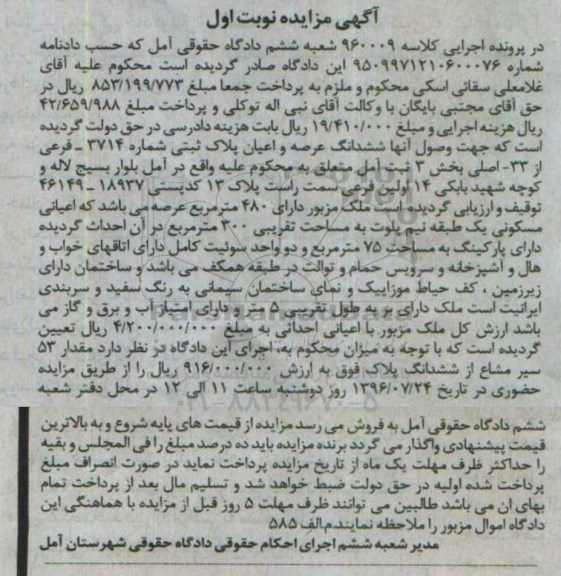 آگهی مزایده نوبت اول
در پرونده اجرایی کلاسه ۹۶۰۰۰۹ شعبه ششم دادگاه حقوقی آمل که حسب دادنامه
شماره ۹۵۰۹۹۷۱۲۱۰۶۰۰۰۷۶ این دادگاه صادر گردیده است محکوم علیه آقای
غلامعلی سقائی اسکی محکوم و ملزم به پرداخت جمعا مبلغ ۸۵۳/۱۹۹/۷۷۳ ریال در
حق آقای مجتبی بایگان با وکالت آقای نبی اله توکلی و پرداخت مبلغ ۴۲/۶۵۹/۹۸۸
ریال هزینه اجرایی و مبلغ ۱۹/۴۱۰/۰۰۰ ریال بابت هزینه دادرسی در حق دولت گردیده
است که جهت وصول آنها ششدانگ عرصه و اعیان پلاک ثبتی شماره ۳۷۱۴ ـ فرعی
از ۳۳- اصلی بخش ۳ ثبت آمل متعلق به محکوم علیه واقع در آمل بلوار بسیج لاله و
کوچه شهید بابکی ۱۴ اولین فرعی سمت راست پلاک ۱۳ کدپستی ۱۸۹۳۷ ـ ۴۶۱۴۹
توقیف و ارزیابی گردیده است ملک مزبور دارای ۴۸۰ مترمربع عرصه می باشد که اعیانی
مسکونی یک طبقه نیم پلوت به مساحت تقریبی ۳۰۰ مترمربع در آن احداث گردیده
دارای پارکینگ به مساحت ۷۵ مترمربع و دو واحد سوئیت کامل دارای اتاقهای خواب و
هال و آشپزخانه و سرویس حمام و توالت در طبقه همکف می باشد و ساختمان دارای
زیرزمین ، کف حیاط موزاییک و نمای ساختمان سیمانی به رنگ سفید و سربندی
ایرانیت است ملک دارای بر به طول تقریبی ۵ متر و دارای امتیاز آب و برق و گاز می
باشد ارزش کل ملک مزبور با اعیانی احداثی به مبلغ ۴/۲۰۰/۰۰۰/۰۰۰ ریال تعیین
گردیده است که با توجه به میزان محکوم به، اجرای این دادگاه در نظر دارد مقدار ۵۳
سیر مشاع از ششدانگ پلاک فوق به ارزش ۹۱۶/۰۰۰/۰۰۰ ریال را از طریق مزایده
حضوری در تاریخ ۱۳۹۶/۰۷/۲۴ روز دوشنبه ساعت ۱۱ الی ۱۲ در محل دفتر شعبه
ششم دادگاه حقوقی آمل به فروش می رسد مزایده از قیمت های پایه شروع و به بالاترین
قیمت پیشنهادی واگذار می گردد برنده مزایده باید ده درصد مبلغ را فی المجلس و بقیه
را حداکثر ظرف مهلت یک ماه از تاریخ مزایده پرداخت نماید در صورت انصراف مبلغ
پرداخت شده اولیه در حق دولت ضبط خواهد شد و تسلیم مال بعد از پرداخت تمام
بهای ان می باشد طالبین می توانند ظرف مهلت ۵ روز قبل از مزایده با هماهنگی این
دادگاه اموال مزبور را ملاحظه نمایند.م.الف ۵۸۵
مدیر شعبه ششم اجرای احکام حقوقی دادگاه حقوقی شهرستان آمل